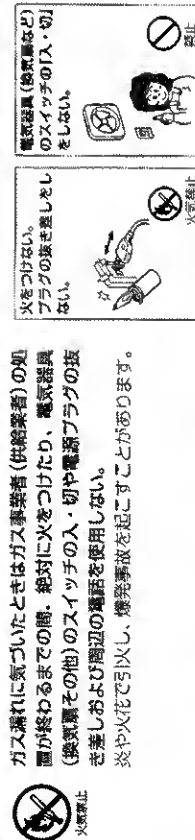 ガス漏れに気づいたときはガス事業者(供給業者)の処
置が終わるまでの間、絶対に火をつけたり、電気器具
(換気扇その他)のスイッチの入・切や電源プラグの抜
き差しおよび周辺の電話を使用しない。
炎や火花で引火し、爆発事故を起こすことがあります。
火気禁止
火をつけない。
プラグの抜き差しをし
ない。
火気禁止
電気器具(換気扇など)
のスイッチの「入・切」
をしない。
禁止